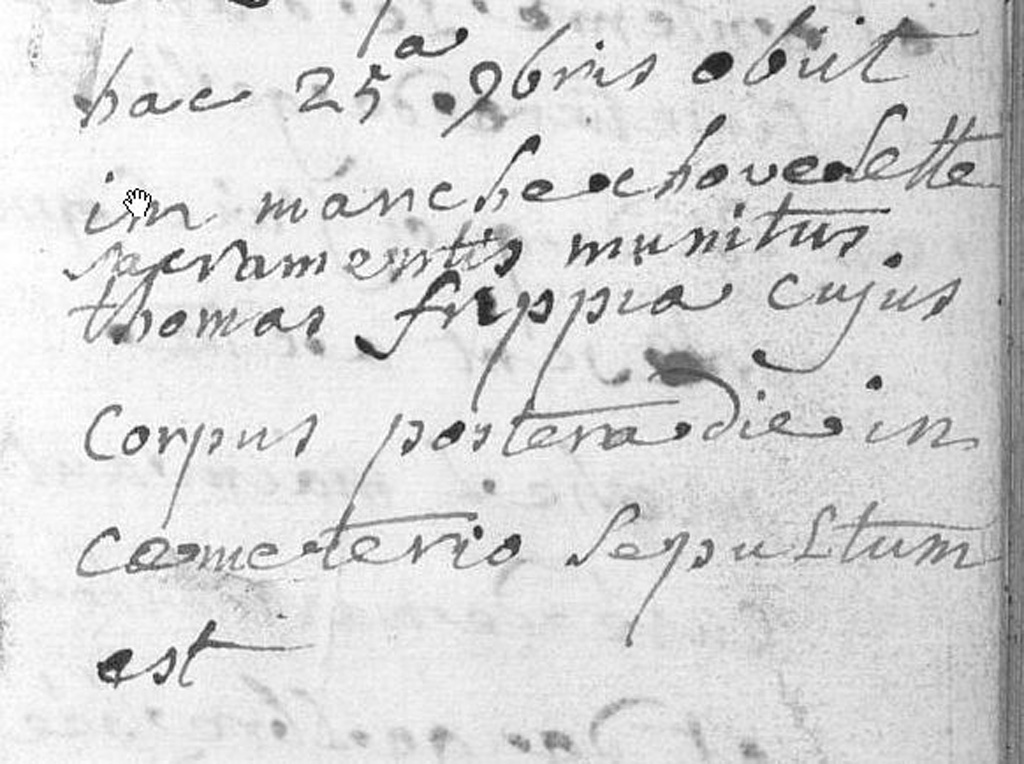 hac 25a 9bris obiit
in manchechovedelette
sacramentis munitus
thomas frippia cujus
Corpus postera die in
Coemeterio sepultum
est